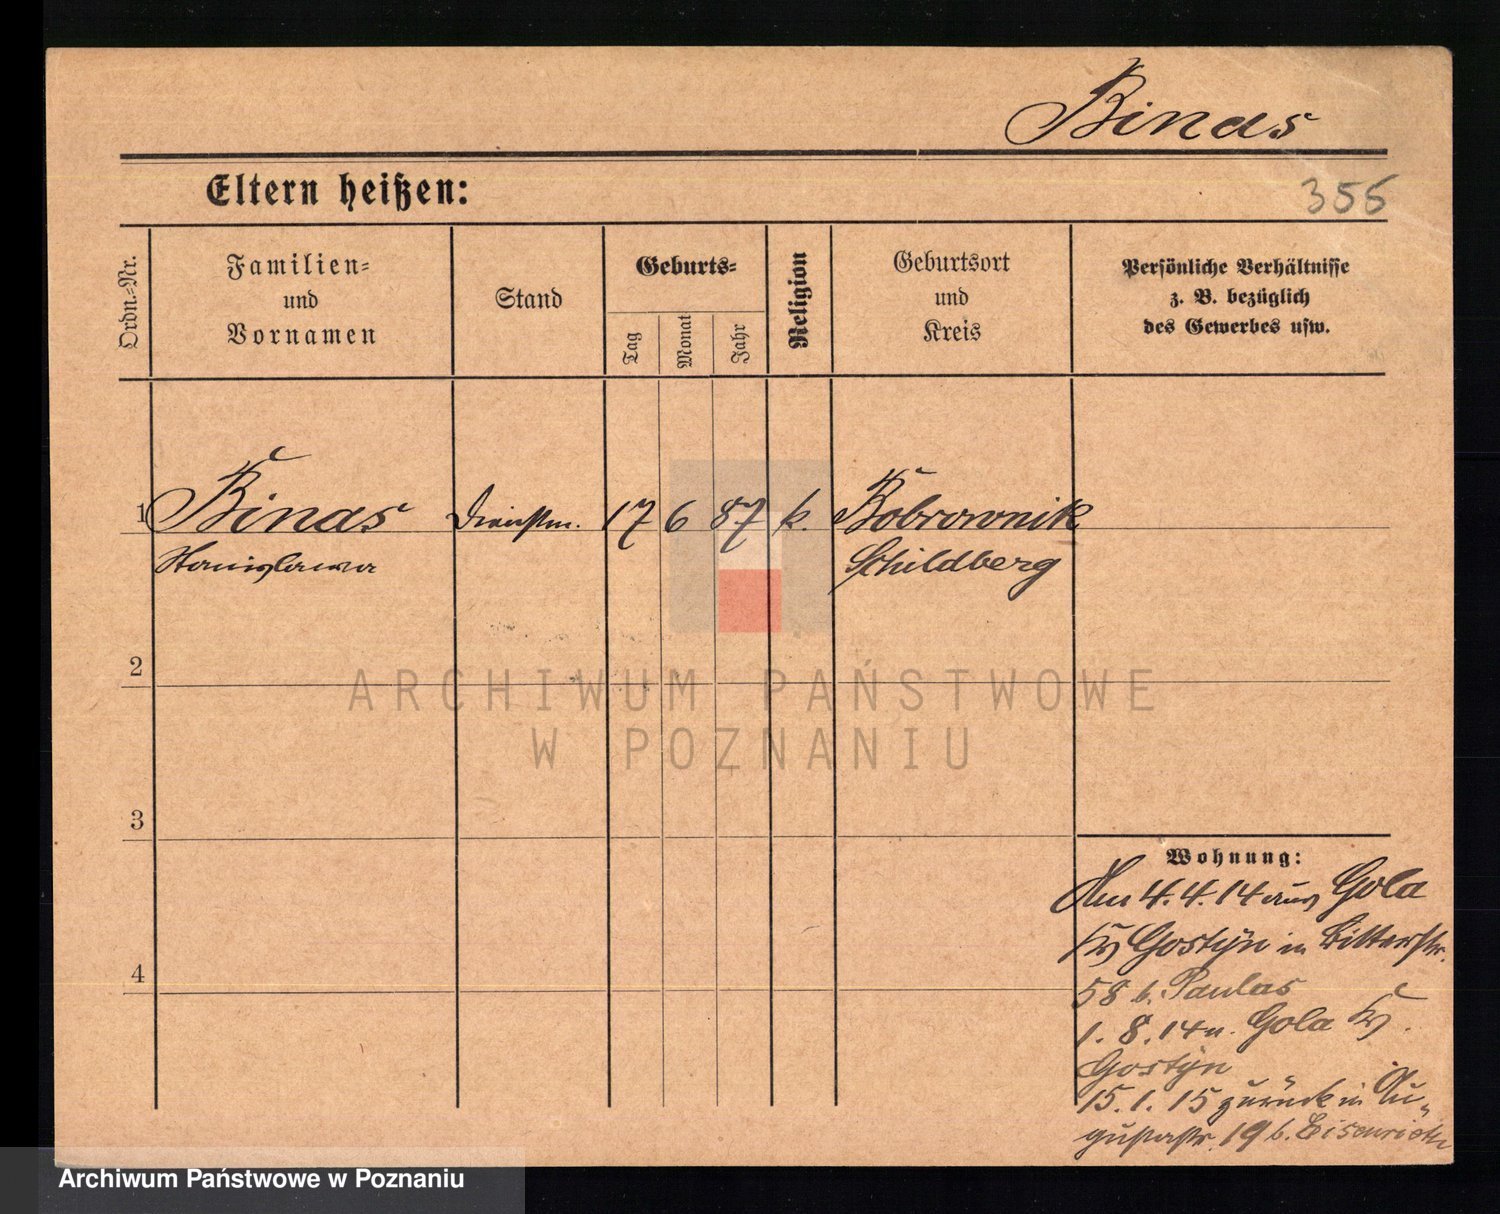 Binas
Eltern heißen:
355
Ordn.-Nr.
Familien-
und
Vornamen
Stand
Geburts-
Tag
Monat
Jahr
Religion
Geburtsort
und
Kreis
Persönliche Verhältnisse
z. B. bezüglich
des Gewerbes usw.
1 Binas Dienstm. 17 6 87 k. Bobrownik
Stanislawa Schildberg
2
ARCHIWUM PAŃSTWOWE
W POZNANIU
3
Wohnung:
Am 4.4.14 aus Gola
Kr Gostyn in Ritterstr.
58 b. Paulas
1. 8. 14 n. Gola Kr.
4
Gostyn
15. 1. 15 zurück in Au-
gustastr. 19 b.
Archiwum Państwowe w Poznaniu